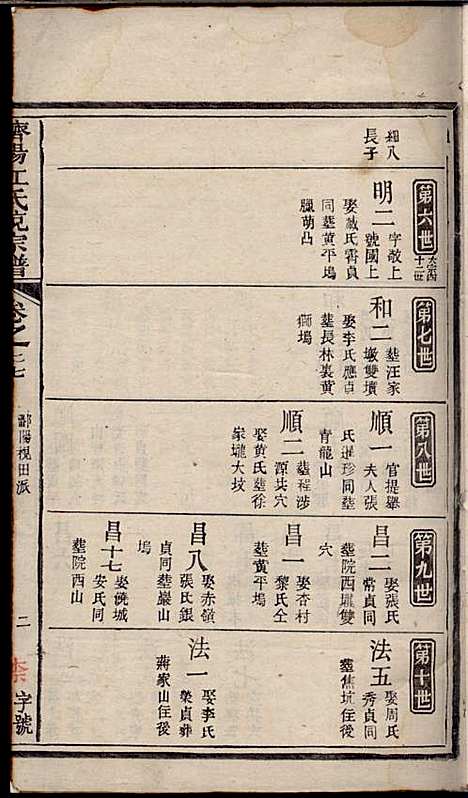 第六世
大宗四
十二世
細八
長子
明二
字敬上
號國上
娶戴氏霄貞
同塟黄平塢
臘萌凸
第七世
和二
塟汪家
墩雙墳
娶李氏應貞
塟長林裏黄
獅塢
第八世
順一
官提舉
夫人張
氏暹珍同塟
青龍山
順二
塟程涉
源共穴
娶黄氏塟徐
家壠大坟
第九世
昌二
娶張氏
常貞同
塟院西壠雙
穴
昌一
娶杏村
黎氏仝
塟黄平塢
昌八
娶赤嶺
張氏銀
貞同塟巖山
塢
昌十七
娶僥城
安氏同
塟院西山
第十世
法五
娶周氏
秀貞同
塟焦坑住後
法一
娶李氏
榮貞葬
蔣家山住後
濟陽江氏克宗譜
卷之二七
鄱陽梘田派
二
字號